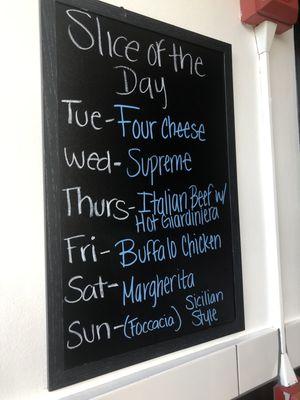 Slice of the
Day
Tue- Four Cheese
Wed- Supreme
Thurs- Italian Beef w/
Hot Giardiniera
Fri- Buffalo Chicken
Sat- Margherita
Sun- (Foccacia) Sicilian
Style